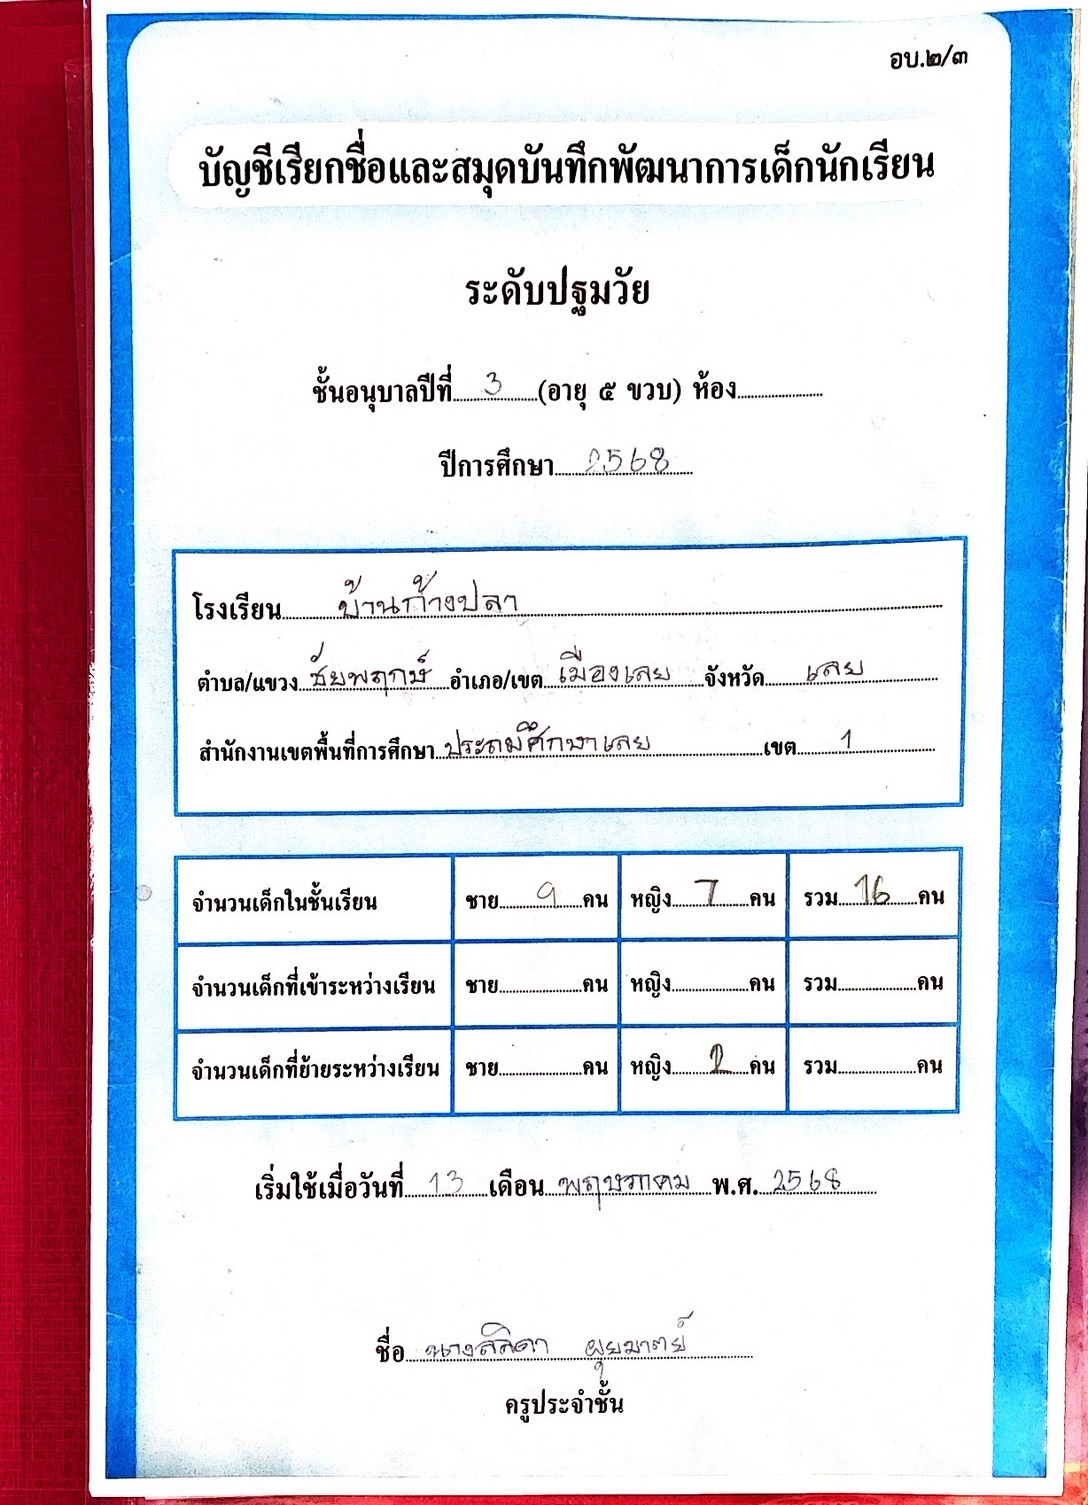 อบ.๒/๓
บัญชีเรียกชื่อและสมุดบันทึกพัฒนาการเด็กนักเรียน
ระดับปฐมวัย
ชั้นอนุบาลปีที่ 3 (อายุ ๕ ขวบ) ห้อง
ปีการศึกษา 2568
โรงเรียน บ้านก้างปลา
ตำบล/แขวง ชัยพฤกษ์ อำเภอ/เขต เมืองเลย จังหวัด เลย
สำนักงานเขตพื้นที่การศึกษา ประถมศึกษาเลย เขต 1
จำนวนเด็กในชั้นเรียน ชาย 9 คน หญิง 7 คน รวม 16 คน
จำนวนเด็กที่เข้าระหว่างเรียน ชาย คน หญิง คน รวม คน
จำนวนเด็กที่ย้ายระหว่างเรียน ชาย คน หญิง คน รวม คน
เริ่มใช้เมื่อวันที่ 13 เดือน พฤษภาคม พ.ศ. 2568
ชื่อ นาง
ครูประจำชั้น